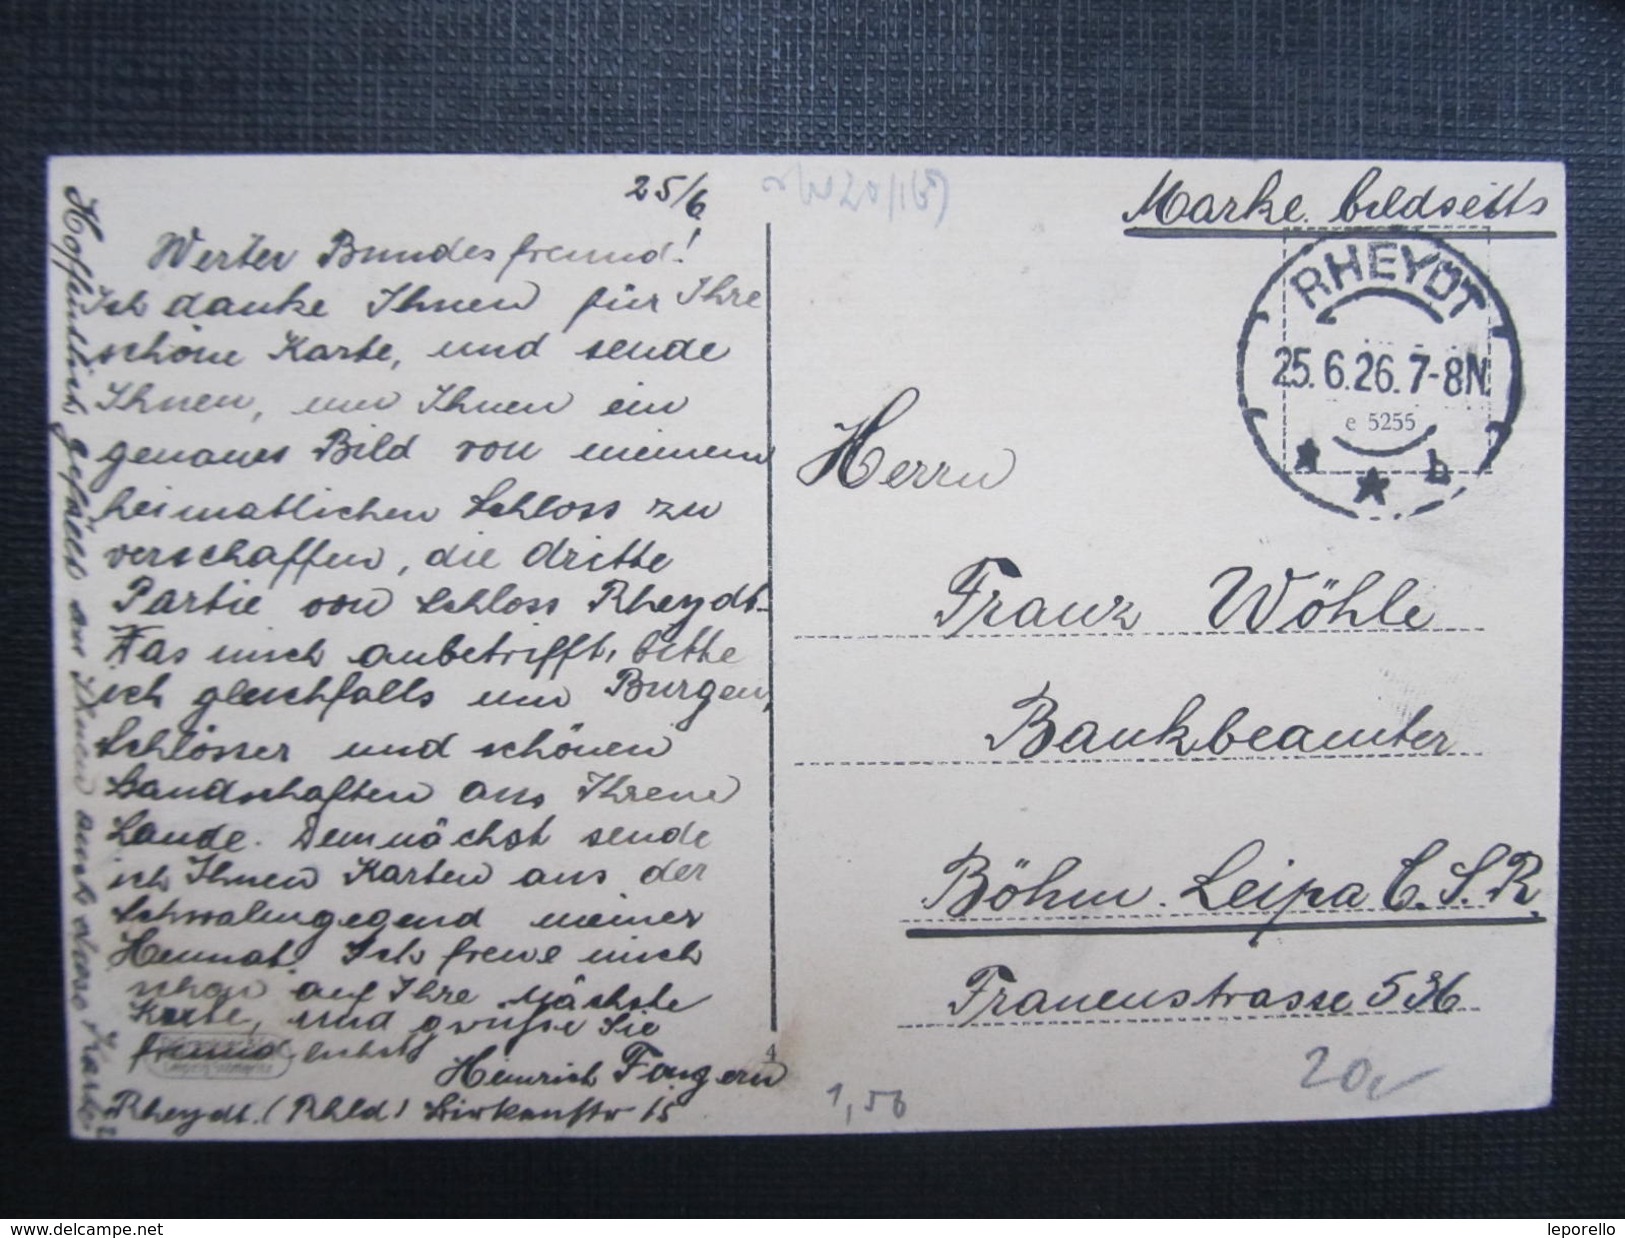 25/6
Werter Bundesfreund!
Ich danke Ihnen für Ihre
schöne Karte, und sende
Ihnen, um Ihnen ein
genaues Bild von meinem
heimatlichen Schloss zu
verschaffen, die dritte
Partie von Schloss Rheydt.
Was mich anbetrifft, bitte
ich gleichfalls um Burgen,
Schlösser und schönen
Landschaften aus Ihrem
Lande. Demnächst sende
ich Ihnen Karten aus der
Schwalmgegend meiner
Heimat. Ich freue mich
schon auf Ihre nächste
Karte, und grüße Sie
freundlichst
Heinrich
Rheydt. (Rhld) 15
Hoffentlich gefällt an Ihnen auch diese Karte?
Marke bildseits
RHEYDT
25.6.26.7-8N
e 5255
b
Herrn
Franz Wöhle
Bankbeamter
Böhm. Leipa Č.S.R.
Frauenstrasse 536
4
1,50
20,-
www.delcampe.net
leporello